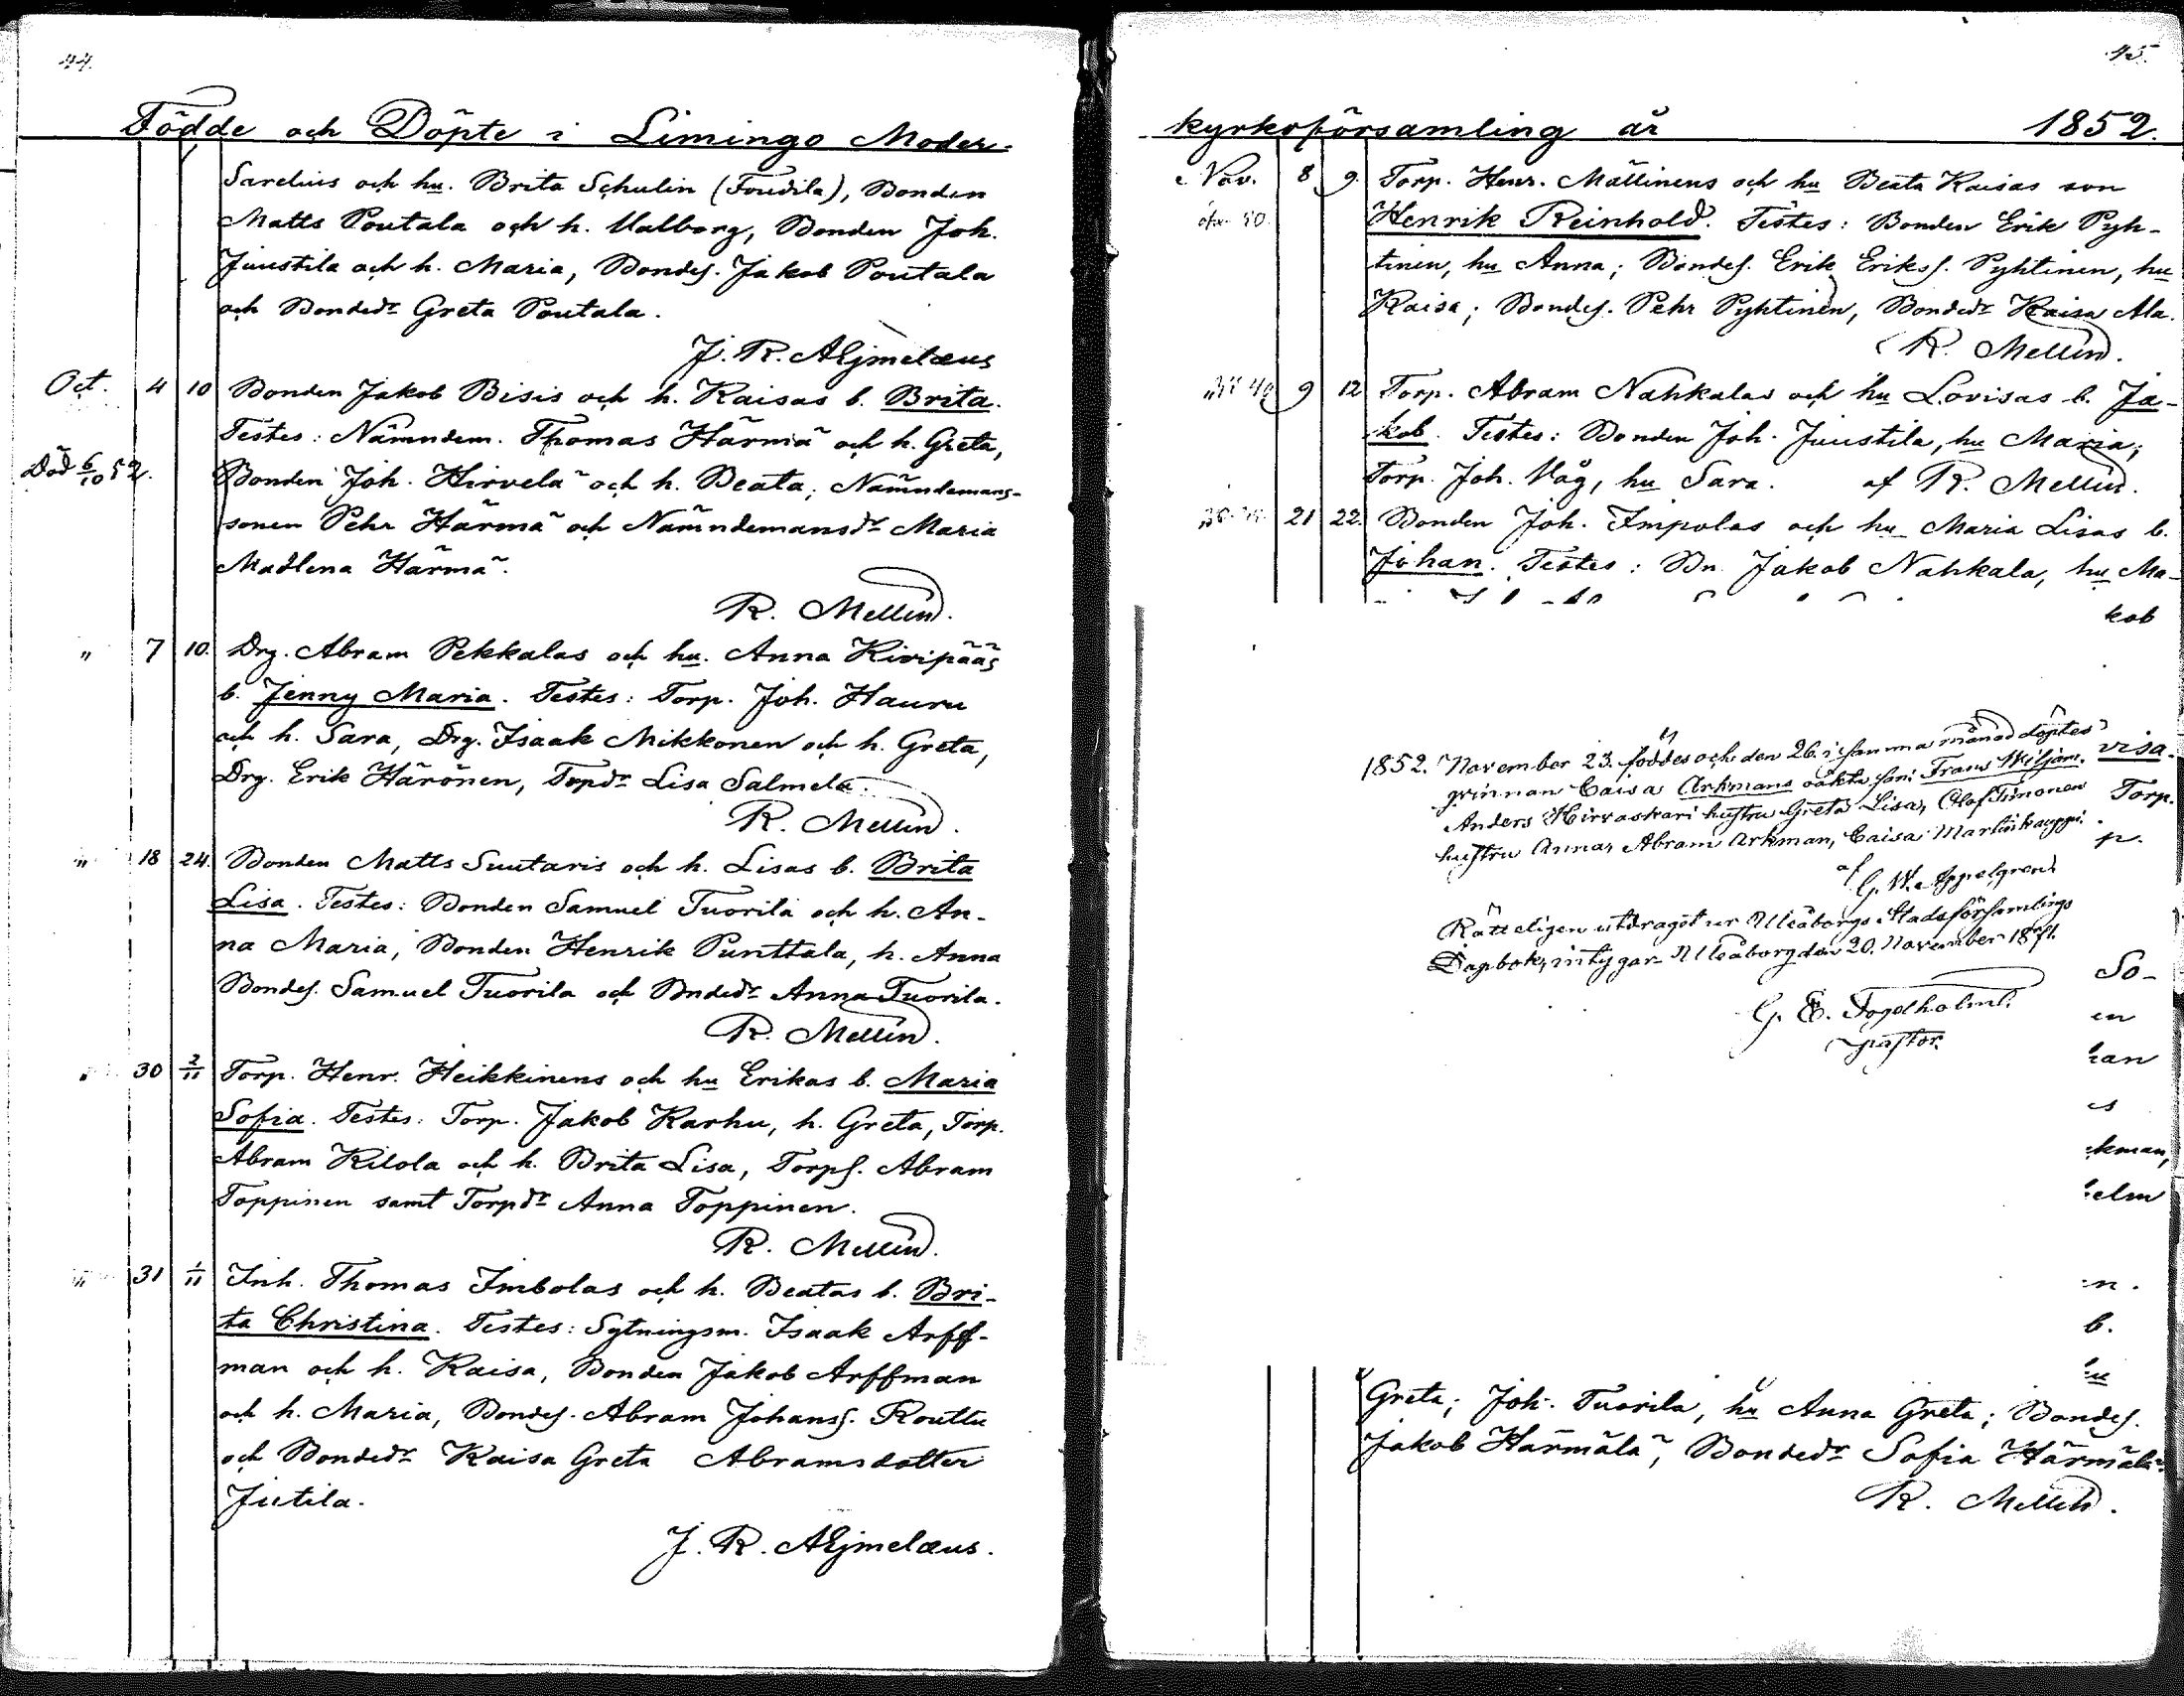 44.
Födde och Döpte i Limingo Moder-
Sarelius och hu. Brita Schulin (Foudila), Bonden
Matts Poutala och h. Valborg, Bonden Joh.
Juustila och h. Maria, Bondes. Jakob Poutala
och Bondedr Greta Poutala.
J. R. Aejmelæus
Oct. 4 10 Bonden Jakob Bisis och h. Kaisas b. Brita.
Testes: Nämndem. Thomas Härmä och h. Greta,
Död 6/10 52. Bonden Joh. Hirvelä och h. Beata, Nämndemans-
sonen Pehr Härmä och Nämndemansdr Maria
Madlena Härmä.
R. Mellin.
" 7 10. Drg. Abram Pekkalas och hu. Anna Kivipääs
b. Jenny Maria. Testes: Torp. Joh. Hauru
och h. Sara, Drg. Isaak Mikkonen och h. Greta,
Drg. Erik Härönen, Torpdr Lisa Salmela.
R. Mellin.
" 18 24. Bonden Matts Suutaris och h. Lisas b. Brita
Lisa. Testes: Bonden Samuel Tuorila och h. An-
na Maria, Bonden Henrik Punttala, h. Anna
Bondes. Samuel Tuorila och Bndedr Anna Tuorila.
R. Mellin.
30 2/11 Torp. Henr. Heikkinens och hu Erikas b. Maria
Sofia. Testes: Torp. Jakob Karhu, h. Greta, Torp.
Abram Kilola och h. Brita Lisa, Torps. Abram
Toppinen samt Torpdr Anna Toppinen.
R. Mellin.
" 31 1/11 Inh. Thomas Imbolas och h. Beatas b. Bri-
ta Christina. Testes: Sytningsm. Isaak Arff-
man och h. Kaisa, Bonden Jakob Arffman
och h. Maria, Bondes. Abram Johanss. Routtu
och Bondedr Kaisa Greta Abramsdotter
Jutila.
J. R. Aejmelæus.
45.
kyrkoförsamling år 1852.
Nov. 8 9. Torp. Henr. Mällinens och hu Beata Kaisas son
Henrik Reinhold. Testes: Bonden Erik Pyh-
tinen, hu Anna; Bondes. Erik Erikss. Pyhtinen, hu
Kaisa; Bondes. Pehr Pyhtinen, Bondedr Kaisa Ala.
R. Mellin.
9 12 Torp. Abram Nahkalas och hu Lovisas b. Ja-
kob. Testes: Bonden Joh. Juustila, hu Maria;
Torp. Joh. Våg, hu Sara. af R. Mellin.
21 22. Bonden Joh. Impolas och hu Maria Lisas b.
Johan. Testes: Bn. Jakob Nahkala, hu Ma-
kob
1852. November 23. föddes och den 26. i samma månad döptes
grinnan Caisa Arkmans oäkta son: Frans Wiljam.
Anders Hirvaskari hustru Greta Lisa, Olof Timonen
hustru Anna, Abram Arkman, Caisa Martinkauppi.
af G. W. Appelgren.
Rätteligen utdraget ur Uleåborgs Stadsförsamlings
Dagbok, intygar. Uleåborg den 20. November 1871.
G. E. Fogelholm.
pastor.
visa.
Torp.
p.
So-
en
han
es
kman,
elm
n.
b.
hu
Greta; Joh. Tuorila, hu Anna Greta; Bondes.
Jakob Härmälä, Bondedr Sofia Härmälä.
R. Mellin.